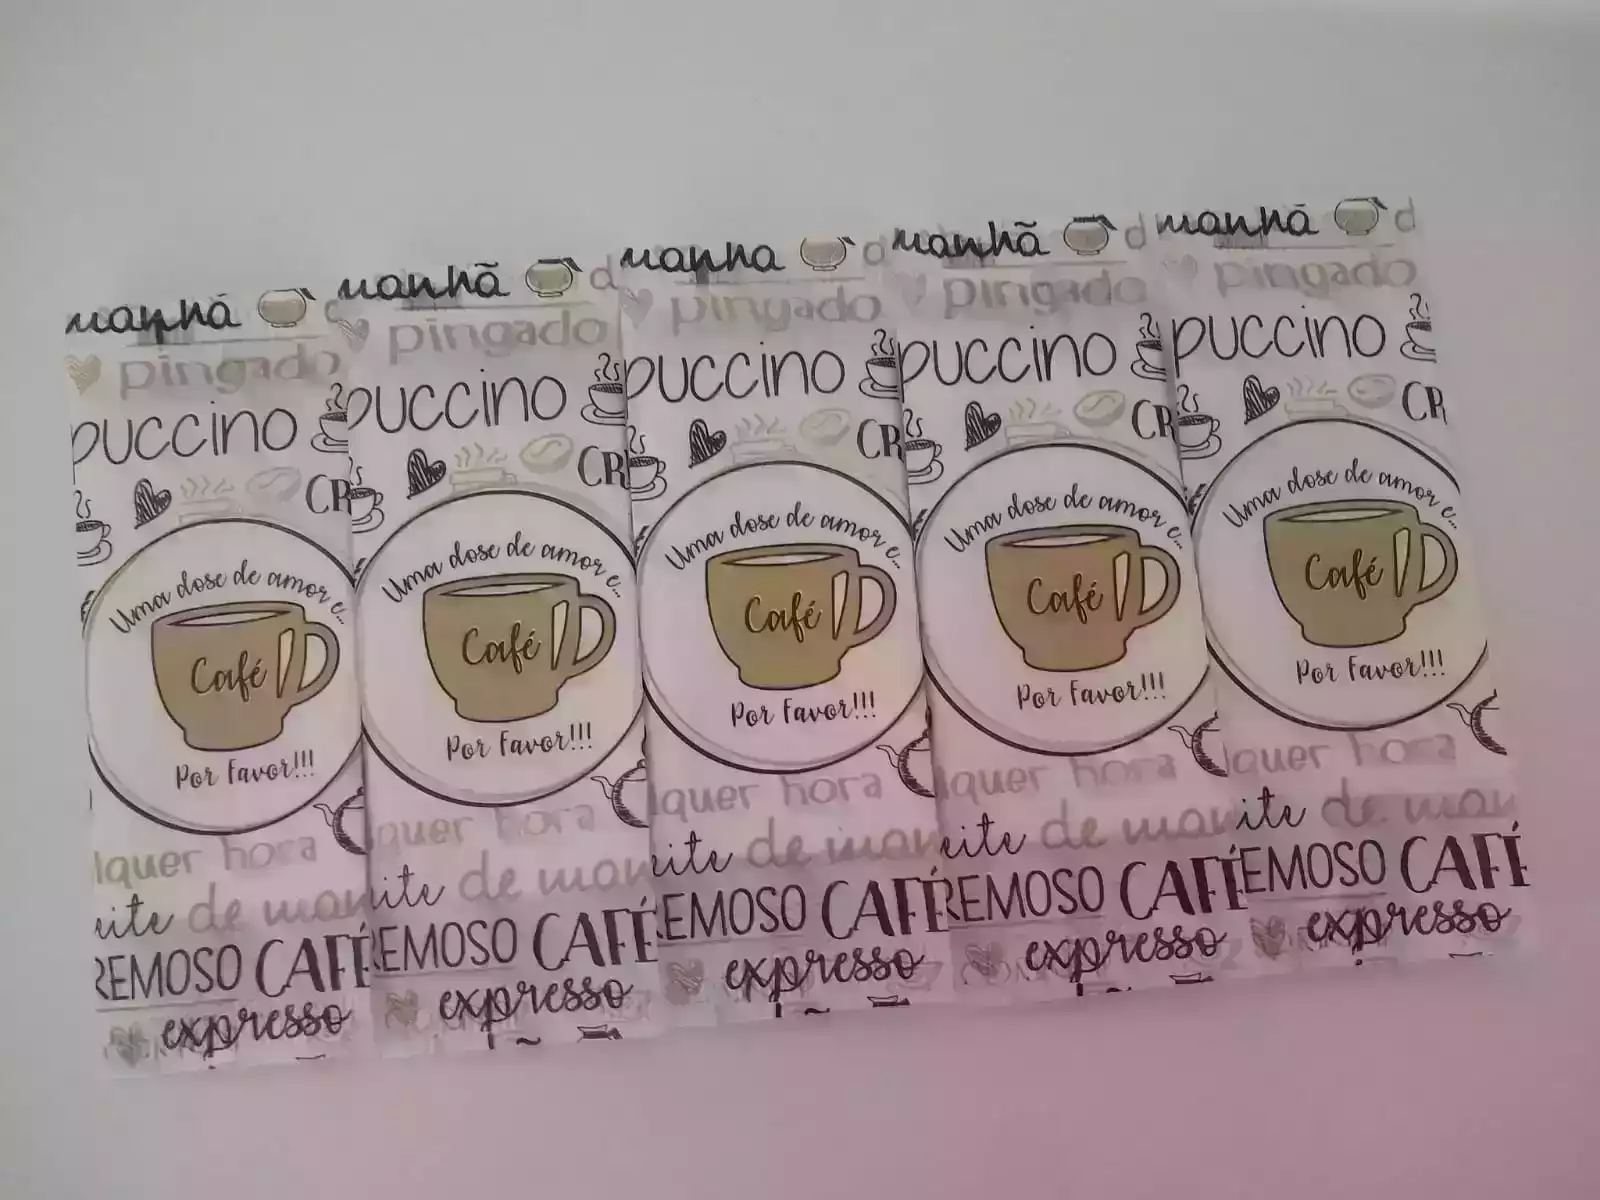 manhã d
pingado
puccino
CR
Uma dose de amor e...
Café
Por Favor!!!
lquer hora
eite de man
REMOSO CAFÉ
expresso
manhã d
pingado
puccino
CR
Uma dose de amor e...
Café
Por Favor!!!
lquer hora
eite de man
REMOSO CAFÉ
expresso
manhã d
pingado
puccino
CR
Uma dose de amor e...
Café
Por Favor!!!
lquer hora
eite de man
REMOSO CAFÉ
expresso
manhã d
pingado
puccino
CR
Uma dose de amor e...
Café
Por Favor!!!
lquer hora
eite de man
REMOSO CAFÉ
expresso
manhã d
pingado
puccino
CR
Uma dose de amor e...
Café
Por Favor!!!
lquer hora
ite de man
EMOSO CAFÉ
expresso